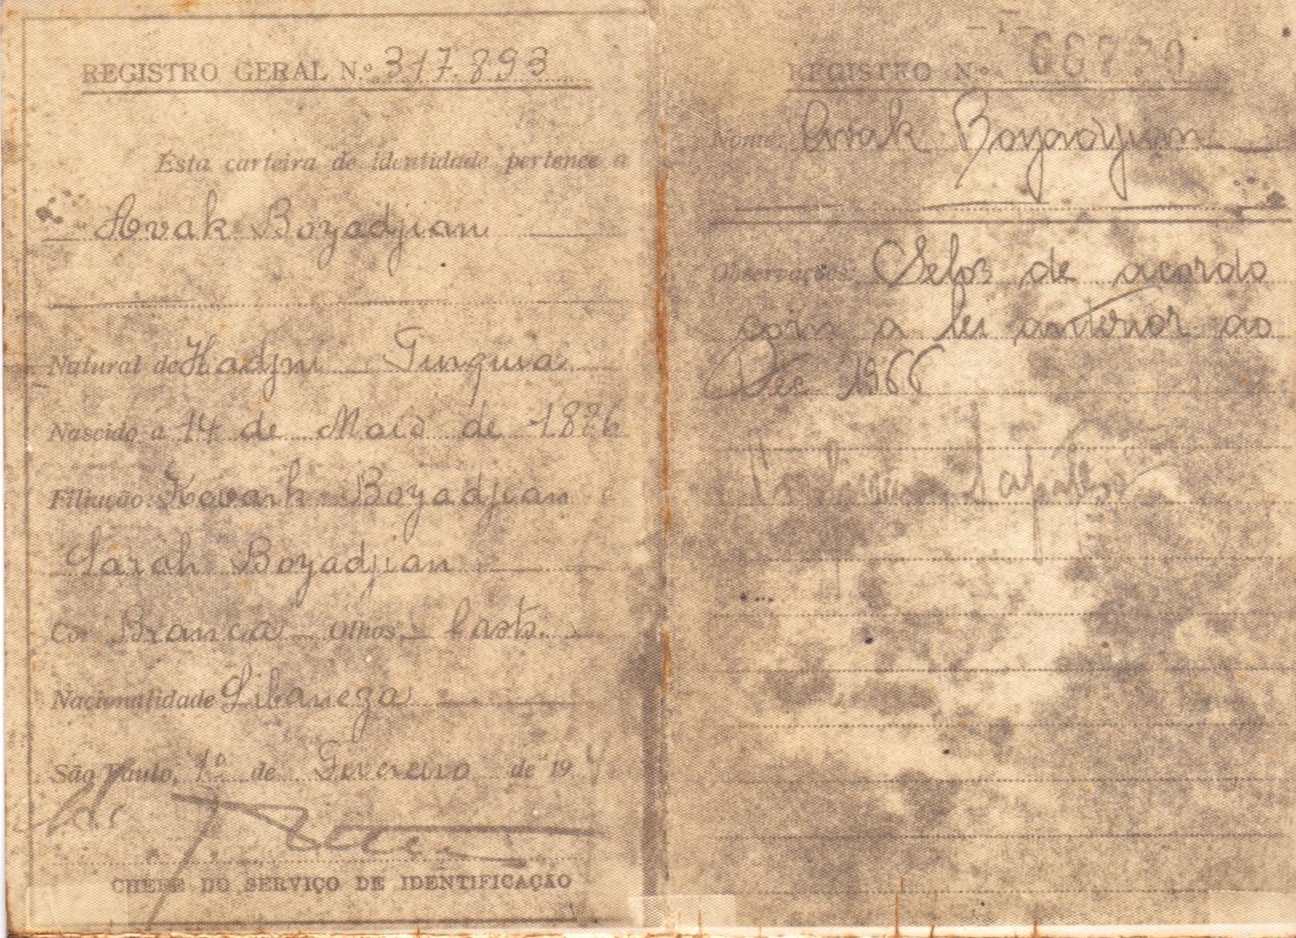 REGISTRO GERAL N.º 317.893
Esta carteira de identidade pertence a
Avak Boyadjian
Natural de Hadjni Turquia
Nascido a 14 de Maio de 1876
Filiação: Kevark Boyadjian
Sarah Boyadjian
Cor Branca Olhos Casts.
Nacionalidade Libaneza
São Paulo, 1º de Fevereiro de 19
CHEFE DO SERVIÇO DE IDENTIFICAÇÃO
— 1 —
REGISTRO Nº
Nome: Avak Boyadjian
Observações: Selos de acordo
com a lei anterior ao
Dec 1966